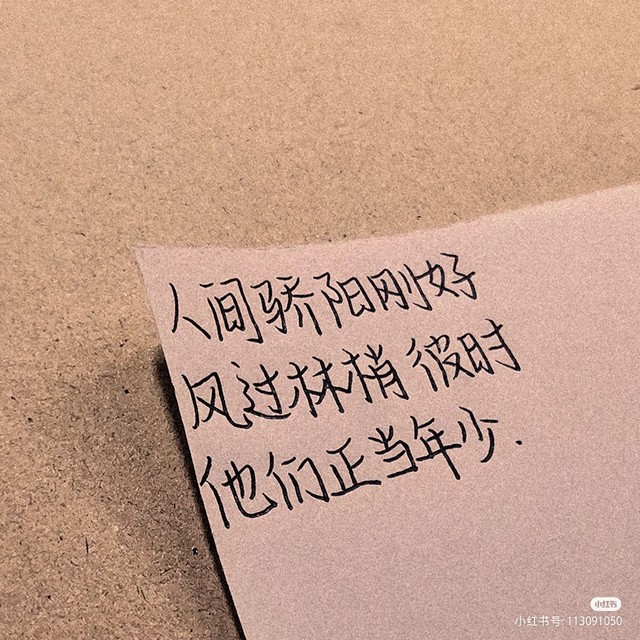 人间骄阳刚好
风过林梢 彼时
他们正当年少.
小红书
小红书号: 113091050